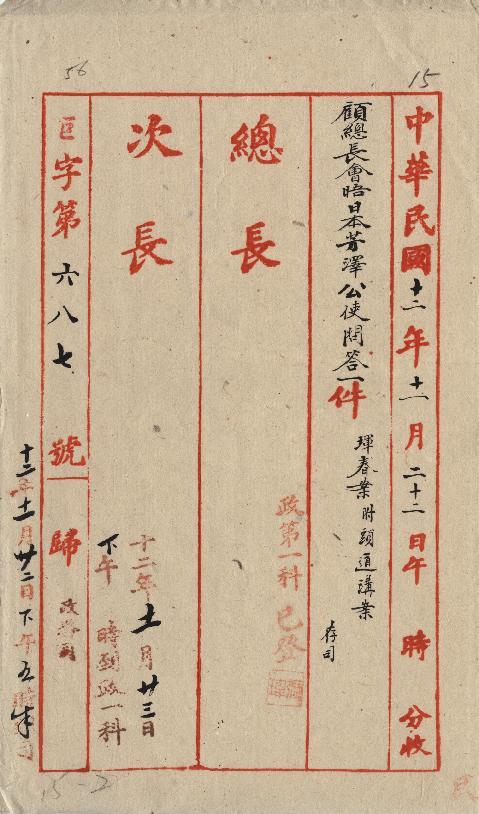 56
15
中華民國十二年十一月二十二日午 時 分收
顧總長會晤日本芳澤公使問答一件
琿春案附頭道溝案
存司
總長
政第一科 已登
次長
十二年十一月廿三日
下午 時到政一科
巨字第六八七號 歸 政務司
十二年十一月廿二日下午五時半 司
15-2